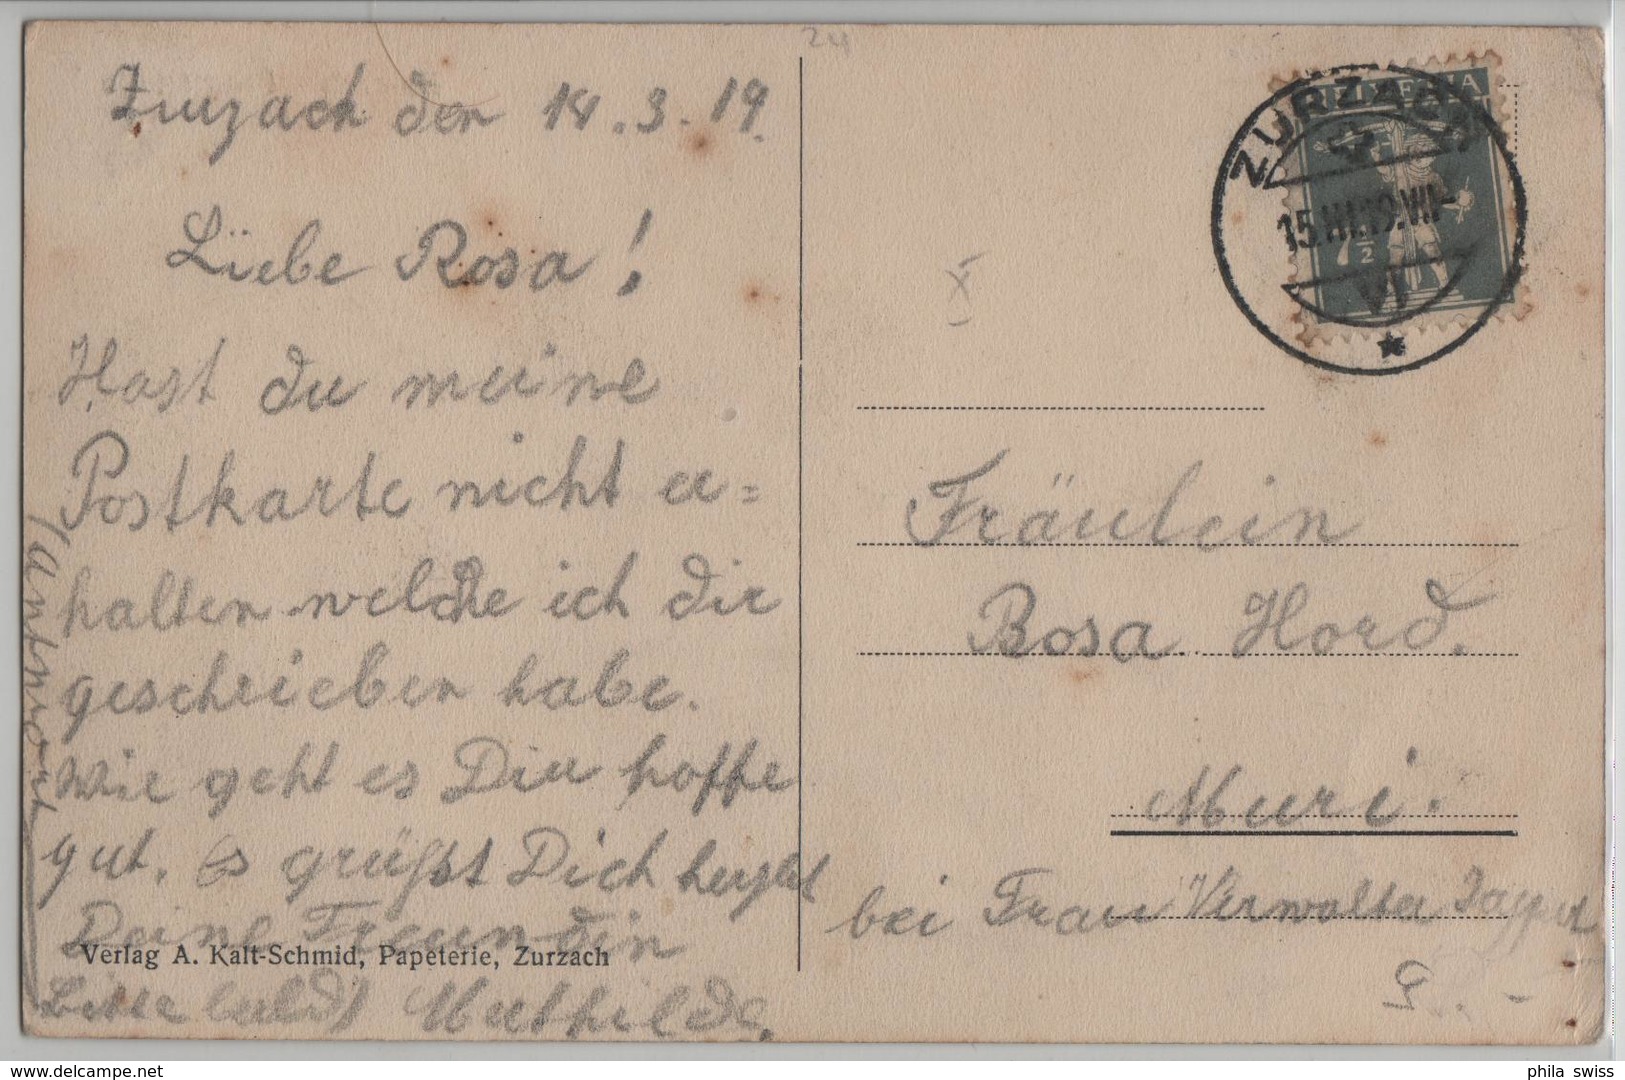 Zurzach den 14.3.19.
Liebe Rosa!
Hast du meine
Postkarte nicht er=
halten welche ich dir
geschrieben habe.
Wie geht es Dir hoffe
gut. Es grüßt Dich herzlich
Deine Freundin
Mathilde.
(Antwort
bitte bald)
Verlag A. Kalt-Schmid, Papeterie, Zurzach
24
HELVETIA
7½
ZURZACH
15.III.19.VII-
VI
X
Fräulein
Rosa Hord.
Muri.
bei Frau Verwalter
delcampe.net
phila_swiss